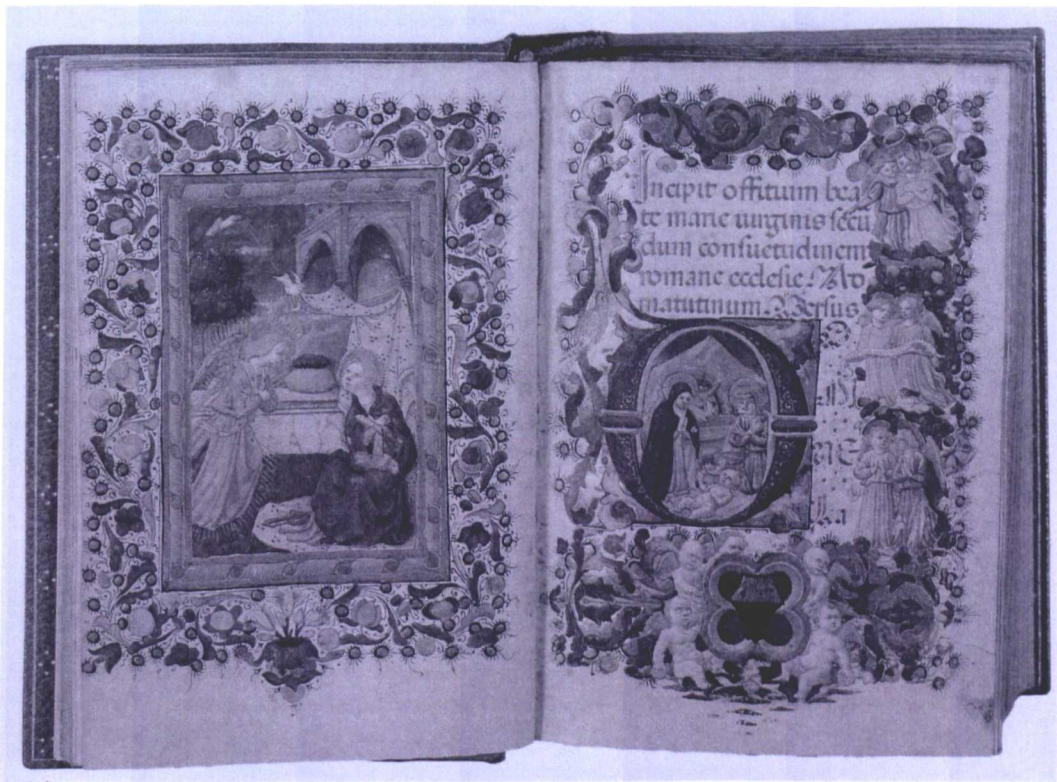 Incipit offitium bea
te marie uirginis secu
dum consuetudinem
romane ecclesie. Ad
matutinum. Versus